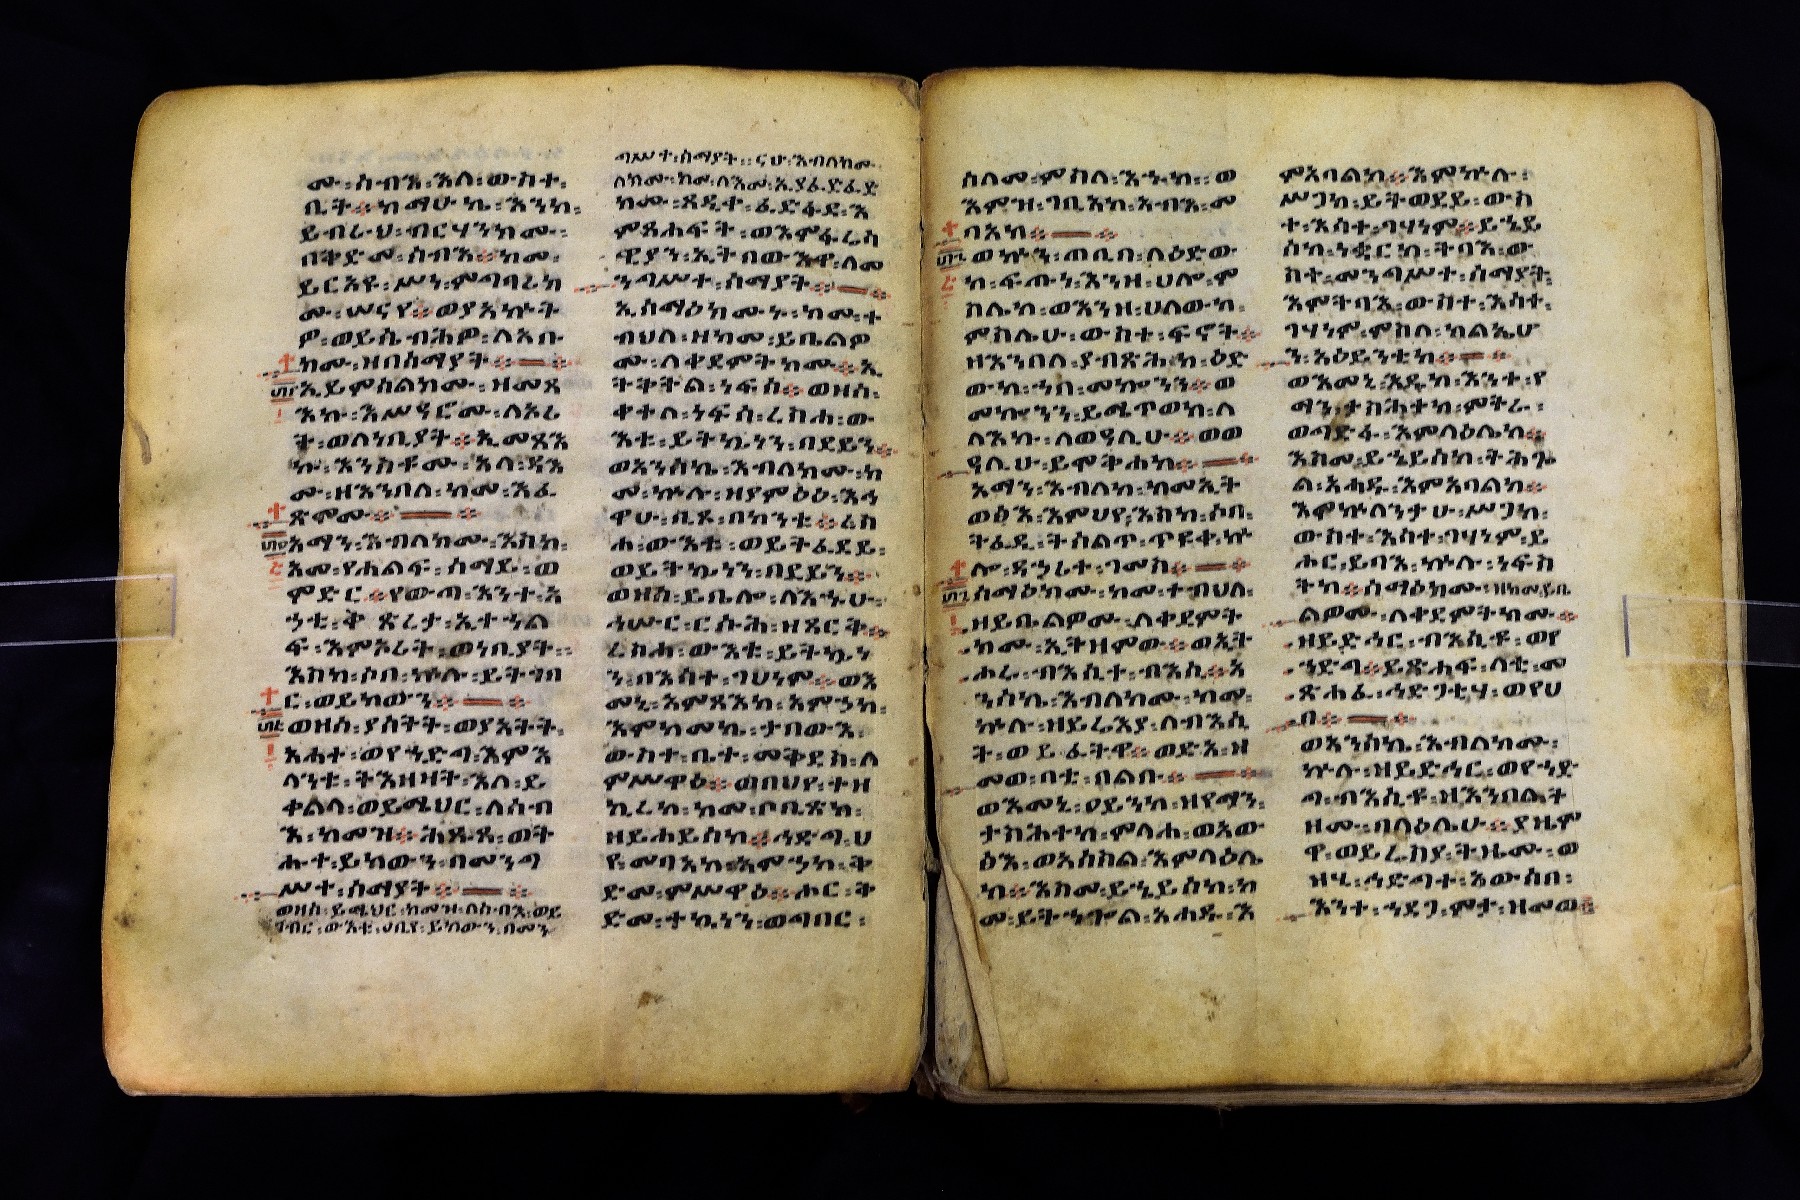 ሙ፡ሰብእ፡እለ፡ውስተ፡
ቤት፨ከማሁኬ፡እንከ፡
ይብራህ፡ብርሃንክሙ፡
በቅድመ፡ሰብእ፨ከመ፡
ይርአዩ፡ሥነ፡ምግባሪክ
ሙ፡ሠናየ፨ወያአኵት
ዎ፡ወይሴብሕዎ፡ለአቡ
ክሙ፡ዘበሰማያት፨
ኢይምሰልክሙ፡ዘመጻ
እኩ፡እሥዓሮሙ፡ለኦሪ
ት፡ወለነቢያት፨ኢመጻእ
ኩ፡እንስቶሙ፡አላ፡ዳእ
ሙ፡ዘእንበለ፡ከመ፡እፈ
ጽሞሙ፨
አማን፡እብለክሙ፡እስከ፡
አመ፡የሐልፍ፡ሰማይ፡ወ
ምድር፨የውጣ፡እንተ፡አ
ሐቲ፡ቅጽረታ፡ኢተኀል
ፍ፡እምኦሪት፡ወነቢያት፡
እስከ፡ሶበ፡ኵሉ፡ይትገበ
ር፡ወይከውን፨
ወዘሰ፡ያስትት፡ወያአትት፡
አሐተ፡ወየኀድግ፡እምእ
ላንቱ፡ትእዛዛት፡እለ፡ይ
ቀልላ፡ወይሜህር፡ለሰብ
እ፡ከመዝ፨ሕጹጸ፡ወት
ሑተ፡ይከውን፡በመንግ
ሥተ፡ሰማያት፨
ወዘሰ፡ይሜህር፡ከመዝ፡ለሰብእ፡ወይ
ገብር፡ውእቱ፡ዐቢየ፡ይከውን፡በመን
ግሥተ፡ሰማያት፡፡ናሁ፡እብለክሙ
ለክሙ፡ከመ፡ለእመ፡ኢያፈድፈድ
ክሙ፡ጸዲቀ፡ፈድፋደ፡እ
ምጸሐፍት፡ወእምፋሪሳ
ዊያን፡ኢትበውኡዋ፡ለመ
ንግሥተ፡ሰማያት፨
ኢሰማዕክሙኑ፡ከመ፡ተ
ብህለ፡ዘከመ፡ይቤልዎ
ሙ፡ለቀደምትክሙ፨ኢ
ትቅትል፡ነፍሰ፨ወዘሰ፡
ቀተለ፡ነፍሰ፡ረስሐ፡ው
እቱ፡ይትኴነን፡በደይን፨
ወአንሰኬ፡እብለክሙ፡ከ
መ፡ኵሉ፡ዘያምዕዕ፡እኅ
ዋሁ፡ቢጾ፡በከንቱ፨ረስ
ሐ፡ውእቱ፡ወይትፈደይ፡
ወይትኴነን፡በደይን፨
ወዘሰ፡ይቤሎ፡ለእኁሁ፡
ኀሡር፡ርሱሕ፡ዘጸርቅ፨
ረስሐ፡ውእቱ፡ይትኴነ
ን፡በእሳተ፡ገሀነም፨ወእ
መኒ፡እምጻእከ፡አምኃከ፡
እምከመኬ፡ታበውእ፡
ውስተ፡ቤተ፡መቅደስ፡ለ
ምሥዋዕ፨ወበህየ፡ተዘ
ኪረከ፡ከመ፡ቦቢጽከ፡
ዘይሐይሰከ፨ኀድግ፡ህ
የ፡መባእከ፡አምኃከ፡ቅ
ድመ፡ምሥዋዕ፨ሑር፡ቅ
ድመ፡ተኴነን፡ወግበር፡
ሰላመ፡ምስለ፡እኁከ፡ወ
እምዝ፡ገቢአከ፡አብእ፡መ
ባአከ፨
ወኩን፡ጠቢበ፡ለዕድው
ከ፡ፍጡነ፡እንዘ፡ሀሎ፡ም
ስሌከ፡ወእንዘ፡ሀለውከ፡
ምስሌሁ፡ውስተ፡ፍኖት፨
ዘእንበለ፡ያብጽሕከ፡ዕድ
ውከ፡ኀበ፡መኰንን፨ወ
መኰንን፡ይሜጥወከ፡ለ
ለእኩ፡ለወዓሊሁ፨ወወ
ዓሊሁ፡ይሞቅሐከ፨
አማን፡እብለከ፡ከመ፡ኢት
ወፅእ፡እምህየ፡እስከ፡ሶበ፡
ትፈዲ፡ትሰልጥ፡ጥዩቀ፡ኵ
ሎ፡ዳኃሪተ፡ገመስ፨
ሰማዕክሙ፡ከመ፡ተብህለ፡
ዘይቤልዎሙ፡ለቀደምት
ክሙ፡ኢትዘምው፨ወኢት
ሑሪ፡ብእሲተ፡ብእሲ፨አ
ንሰኬ፡እብለክሙ፡ከመ፡
ኵሉ፡ዘይሬእያ፡ለብእሲ
ት፡ወይፈትዋ፨ወድአ፡ዘ
መወ፡ባቲ፡በልቡ፨
ወእመኒ፡ዐይንከ፡ዘየማን፡
ታስሕተከ፡ምላሐ፡ወአው
ፅእ፡ወአሰስል፡እምላዕሌ
ከ፨እስመ፡ይኄይሰከ፡ከ
መ፡ይትኀጐል፡አሐዱ፡እ
ምአባልከ፨እምኵሉ፡
ሥጋከ፡ይትወደይ፡ውስ
ተ፡እሳተ፡ገሃነም፨ይኄይ
ሰከ፡ነቋርከ፡ትባእ፡ው
ስተ፡መንግሥተ፡ሰማያት፡
እምትባእ፡ውስተ፡እሳተ፡
ገሃነም፡ምስለ፡ክልኤሁ
ን፡አዕይንቲከ፨
ወእመኒ፡እዴከ፡እንተ፡የ
ማን፡ተስሕተከ፡ምትራ፡
ወግድፋ፡እምላዕሌከ፨
እስመ፡ይኄይሰከ፡ትሕጐ
ል፡አሐዱ፡እምአባልከ፨
እምኵለንታሁ፡ሥጋከ፡
ውስተ፡እሳተ፡ገሃነም፡ይ
ሑር፡ይባእ፡ኵሉ፡ነፍስ
ትከ፨ሰማዕክሙ፡ዘከመ፡ይቤ
ልዎሙ፡ለቀደምትክሙ፨
ዘይድኅር፡ብእሲቶ፡ወየ
ኀድጋ፨ይጽሐፍ፡ላቲ፡መ
ጽሐፈ፡ኀድጋቲሃ፡ወየሀ
ባ፨
ወአንሰኬ፡እብለክሙ፡
ኵሉ፡ዘይድኅር፡ወየኀድ
ግ፡ብእሲቶ፡ዘእንበለ፡ት
ዘሙ፡በላዕሌሁ፨ያዜም
ዋ፡ወይሬስያ፡ትዜሙ፡ወ
ዘሂ፡ኀድግተ፡አውሰበ፡
እንተ፡ኀደጋ፡ምታ፡ዘመወ፡